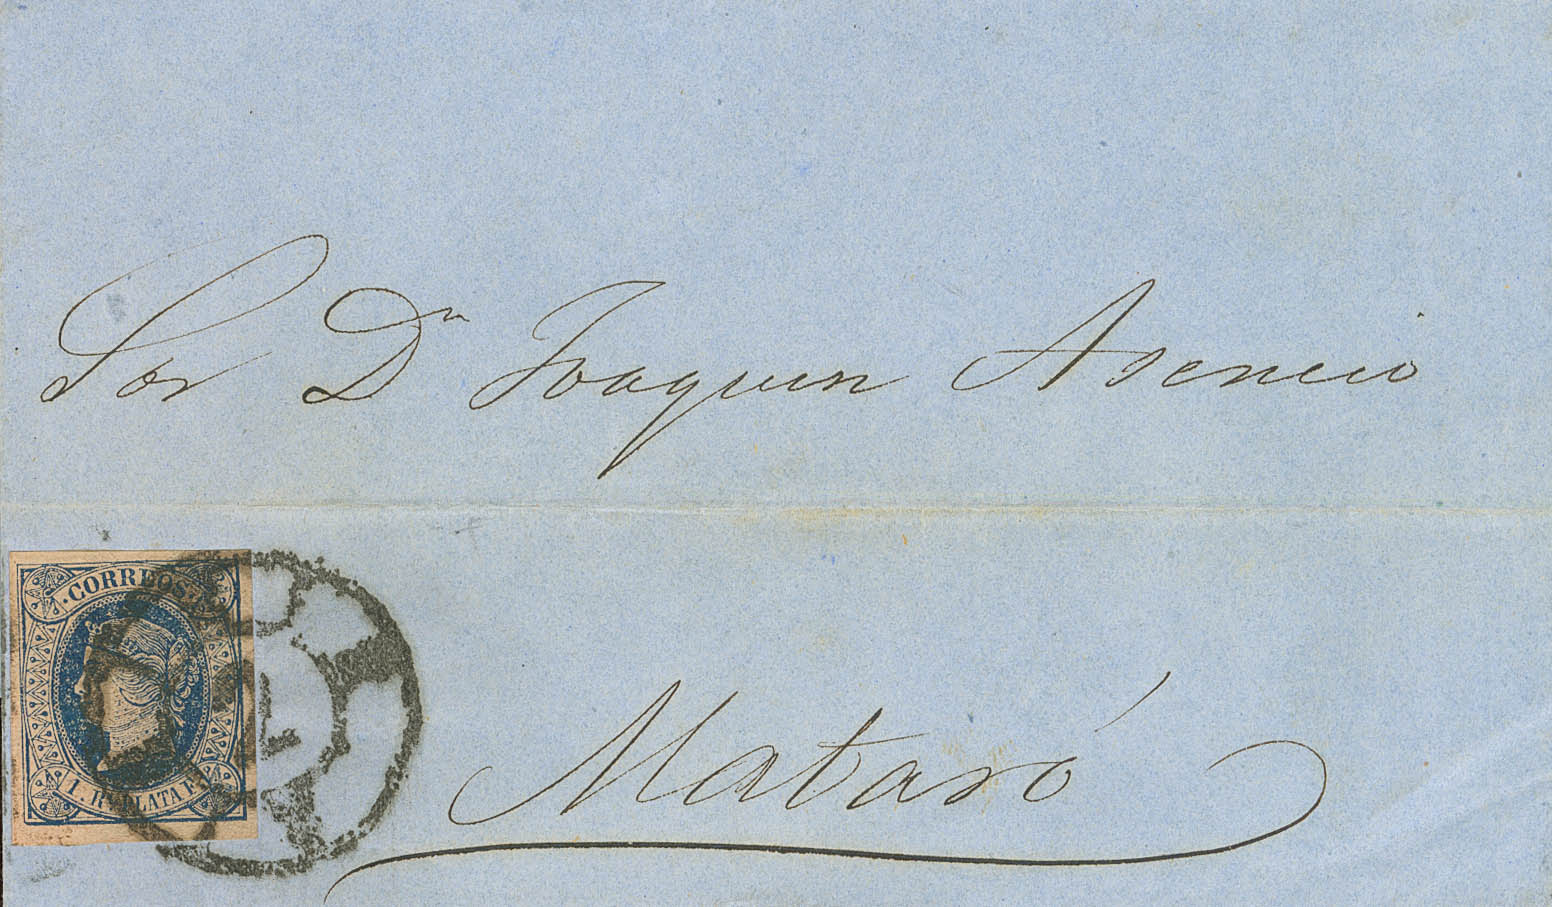 Sor Dn Joaquin Asencio
CORREOS
1. Rl PLATA F.
Mataró